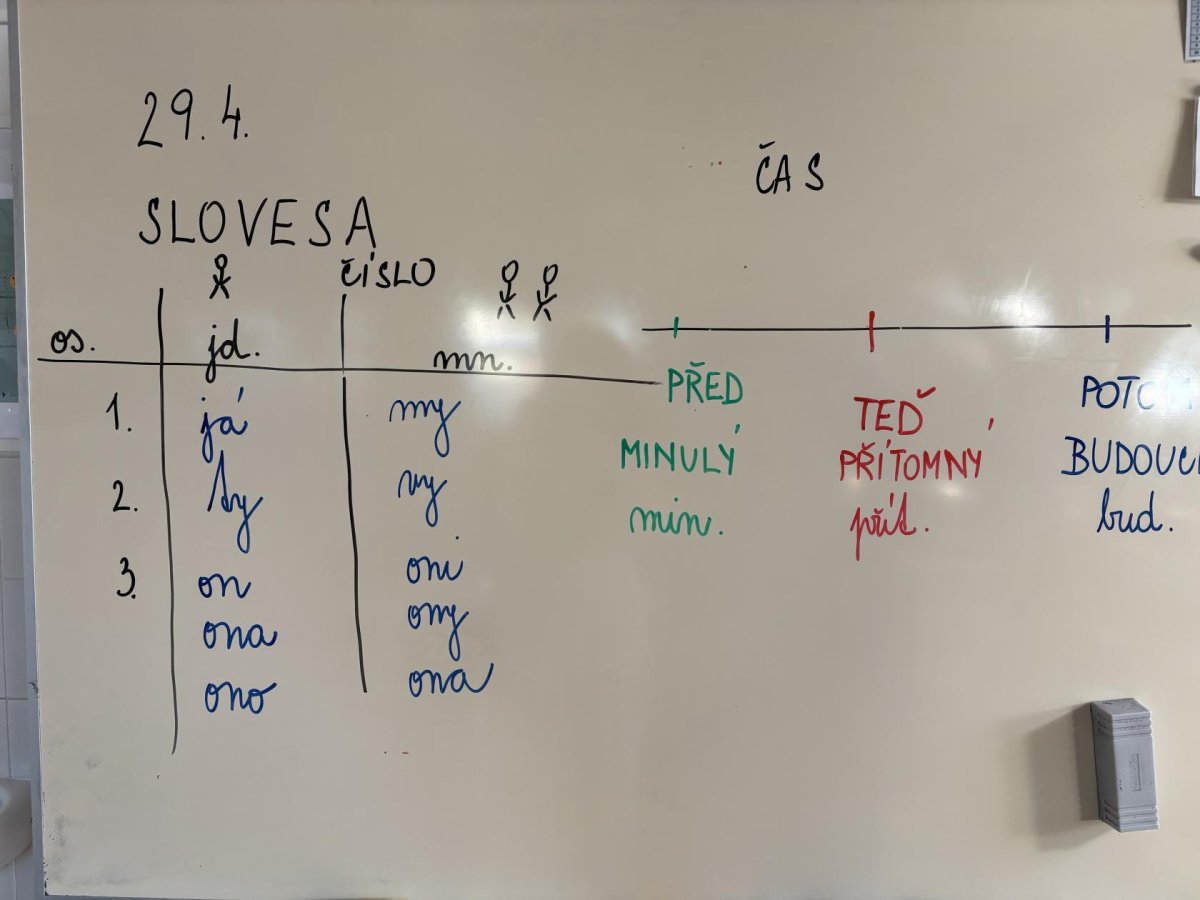 29.4.
SLOVESA
ČÍSLO
os. jd. mn.
1. já my
2. ty vy
3. on oni
ona ony
ono ona
ČAS
PŘED TEĎ POTOM
MINULÝ PŘÍTOMNÝ BUDOUCÍ
min. přít. bud.